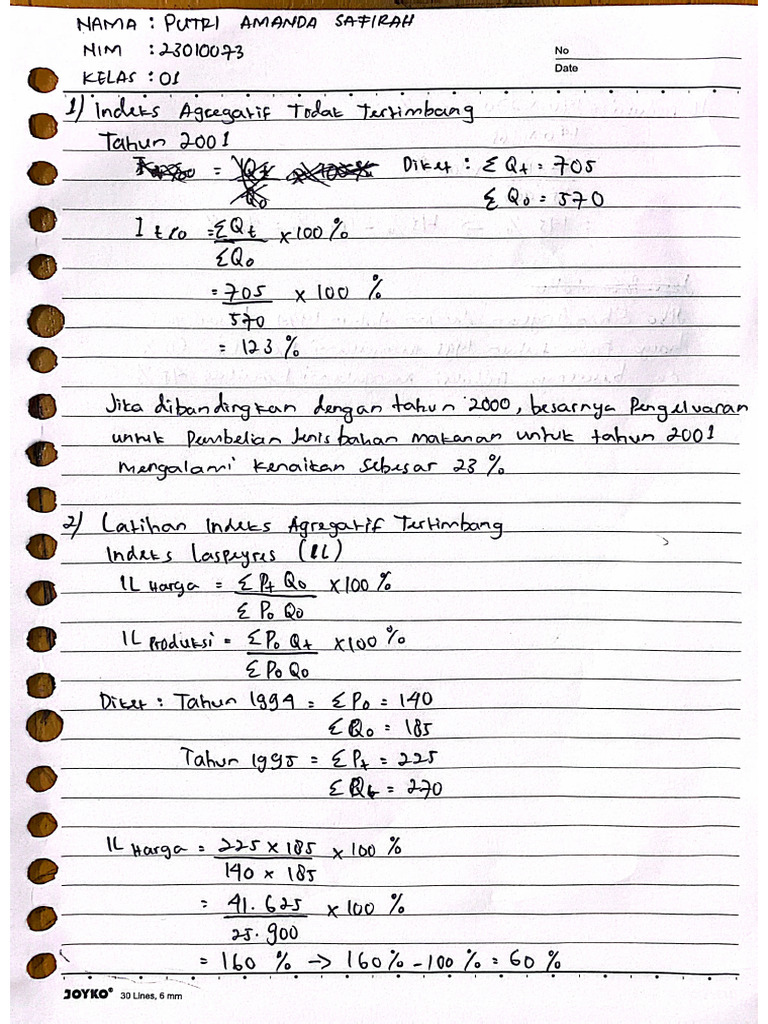 NAMA : PUTRI AMANDA SAFIRAH
NIM : 23010073
KELAS : 01
No
Date
1) Indeks Agregatif Todak Tertimbang
Tahun 2001
Diket : Σ Qt = 705
Σ Qo = 570
I t/o = ΣQt x 100 %
ΣQo
= 705 x 100 %
570
= 123 %
Jika dibandingkan dengan tahun 2000, besarnya Pengeluaran
untuk Pembelian Jenis bahan makanan untuk tahun 2001
mengalami kenaikan sebesar 23 %
2) Latihan Indeks Agregatif Tertimbang
Indeks Laspeyres (IL)
IL Harga = Σ Pt Qo x 100 %
Σ Po Qo
IL Produksi = Σ Po Qt x 100 %
Σ Po Qo
Diket : Tahun 1994 = Σ Po = 140
Σ Qo = 185
Tahun 1995 = Σ Pt = 225
Σ Qt = 270
IL Harga = 225 x 185 x 100 %
140 x 185
= 41.625 x 100 %
25.900
= 160 % → 160 % - 100 % = 60 %
JOYKO® 30 Lines, 6 mm